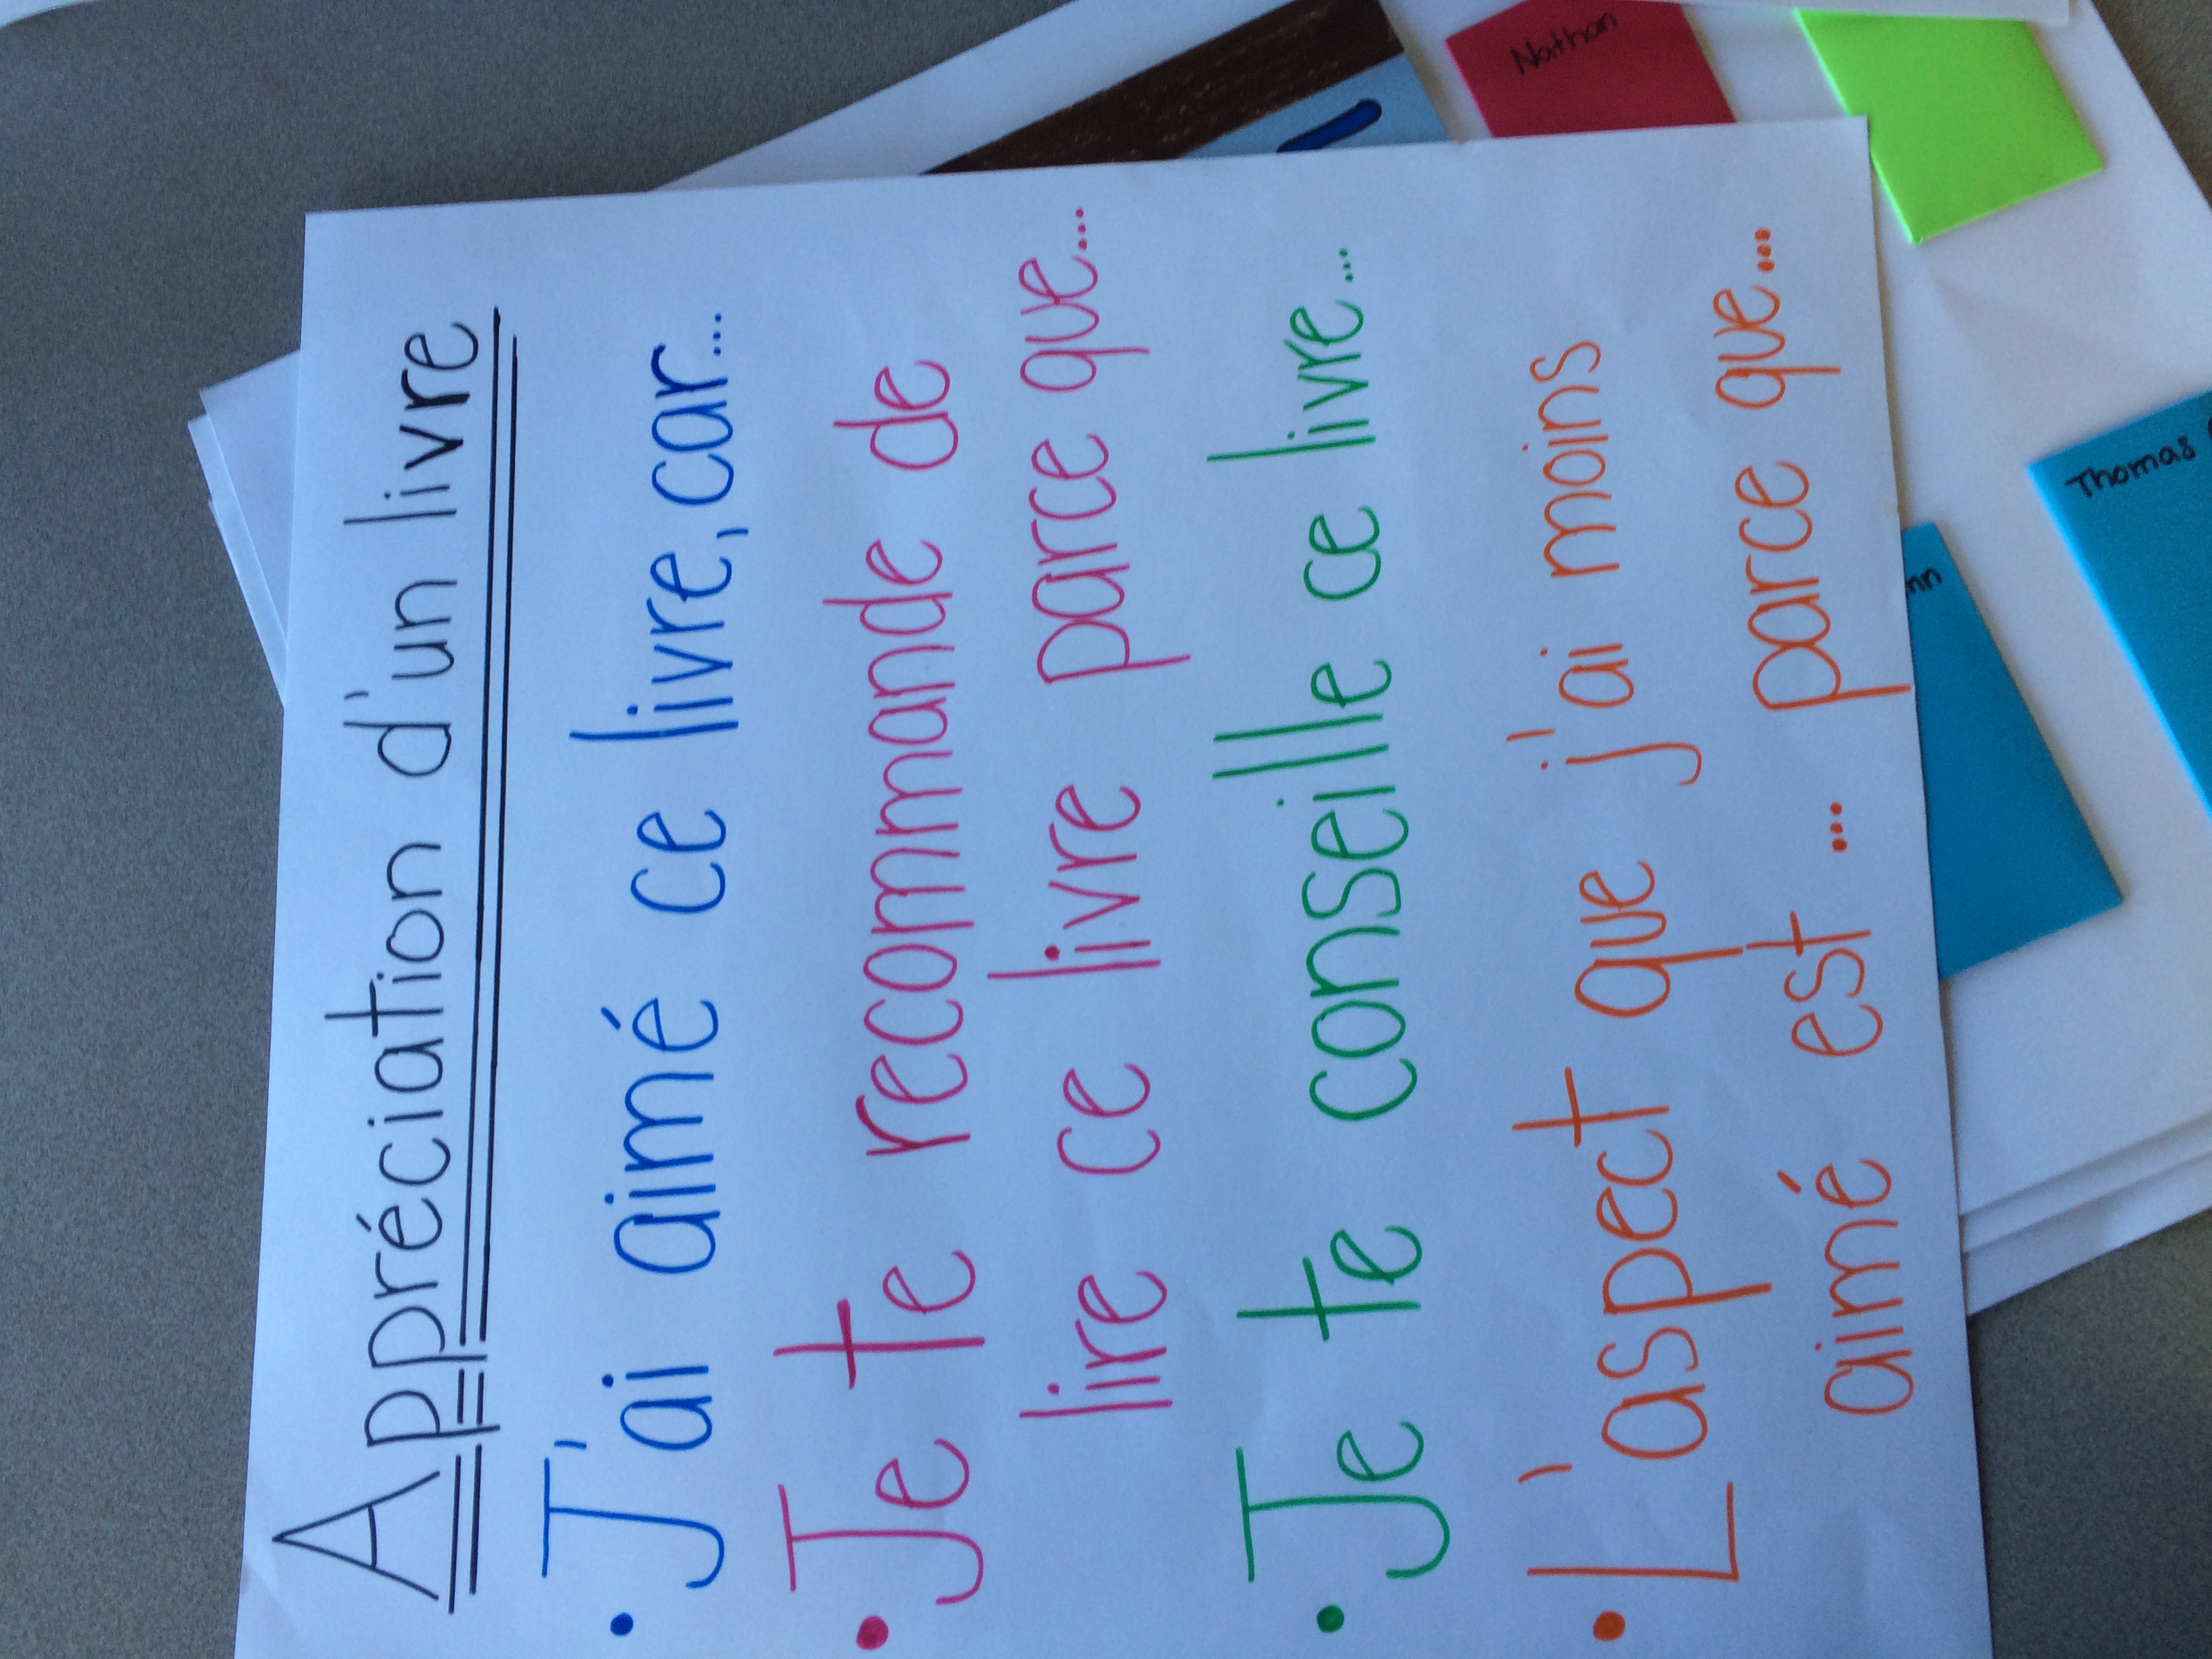 Appréciation d'un livre
• J'ai aimé ce livre, car...
• Je te recommande de
lire ce livre parce que...
• Je te conseille ce livre...
• L'aspect que j'ai moins
aimé est ... parce que...
Nathan
Thomas